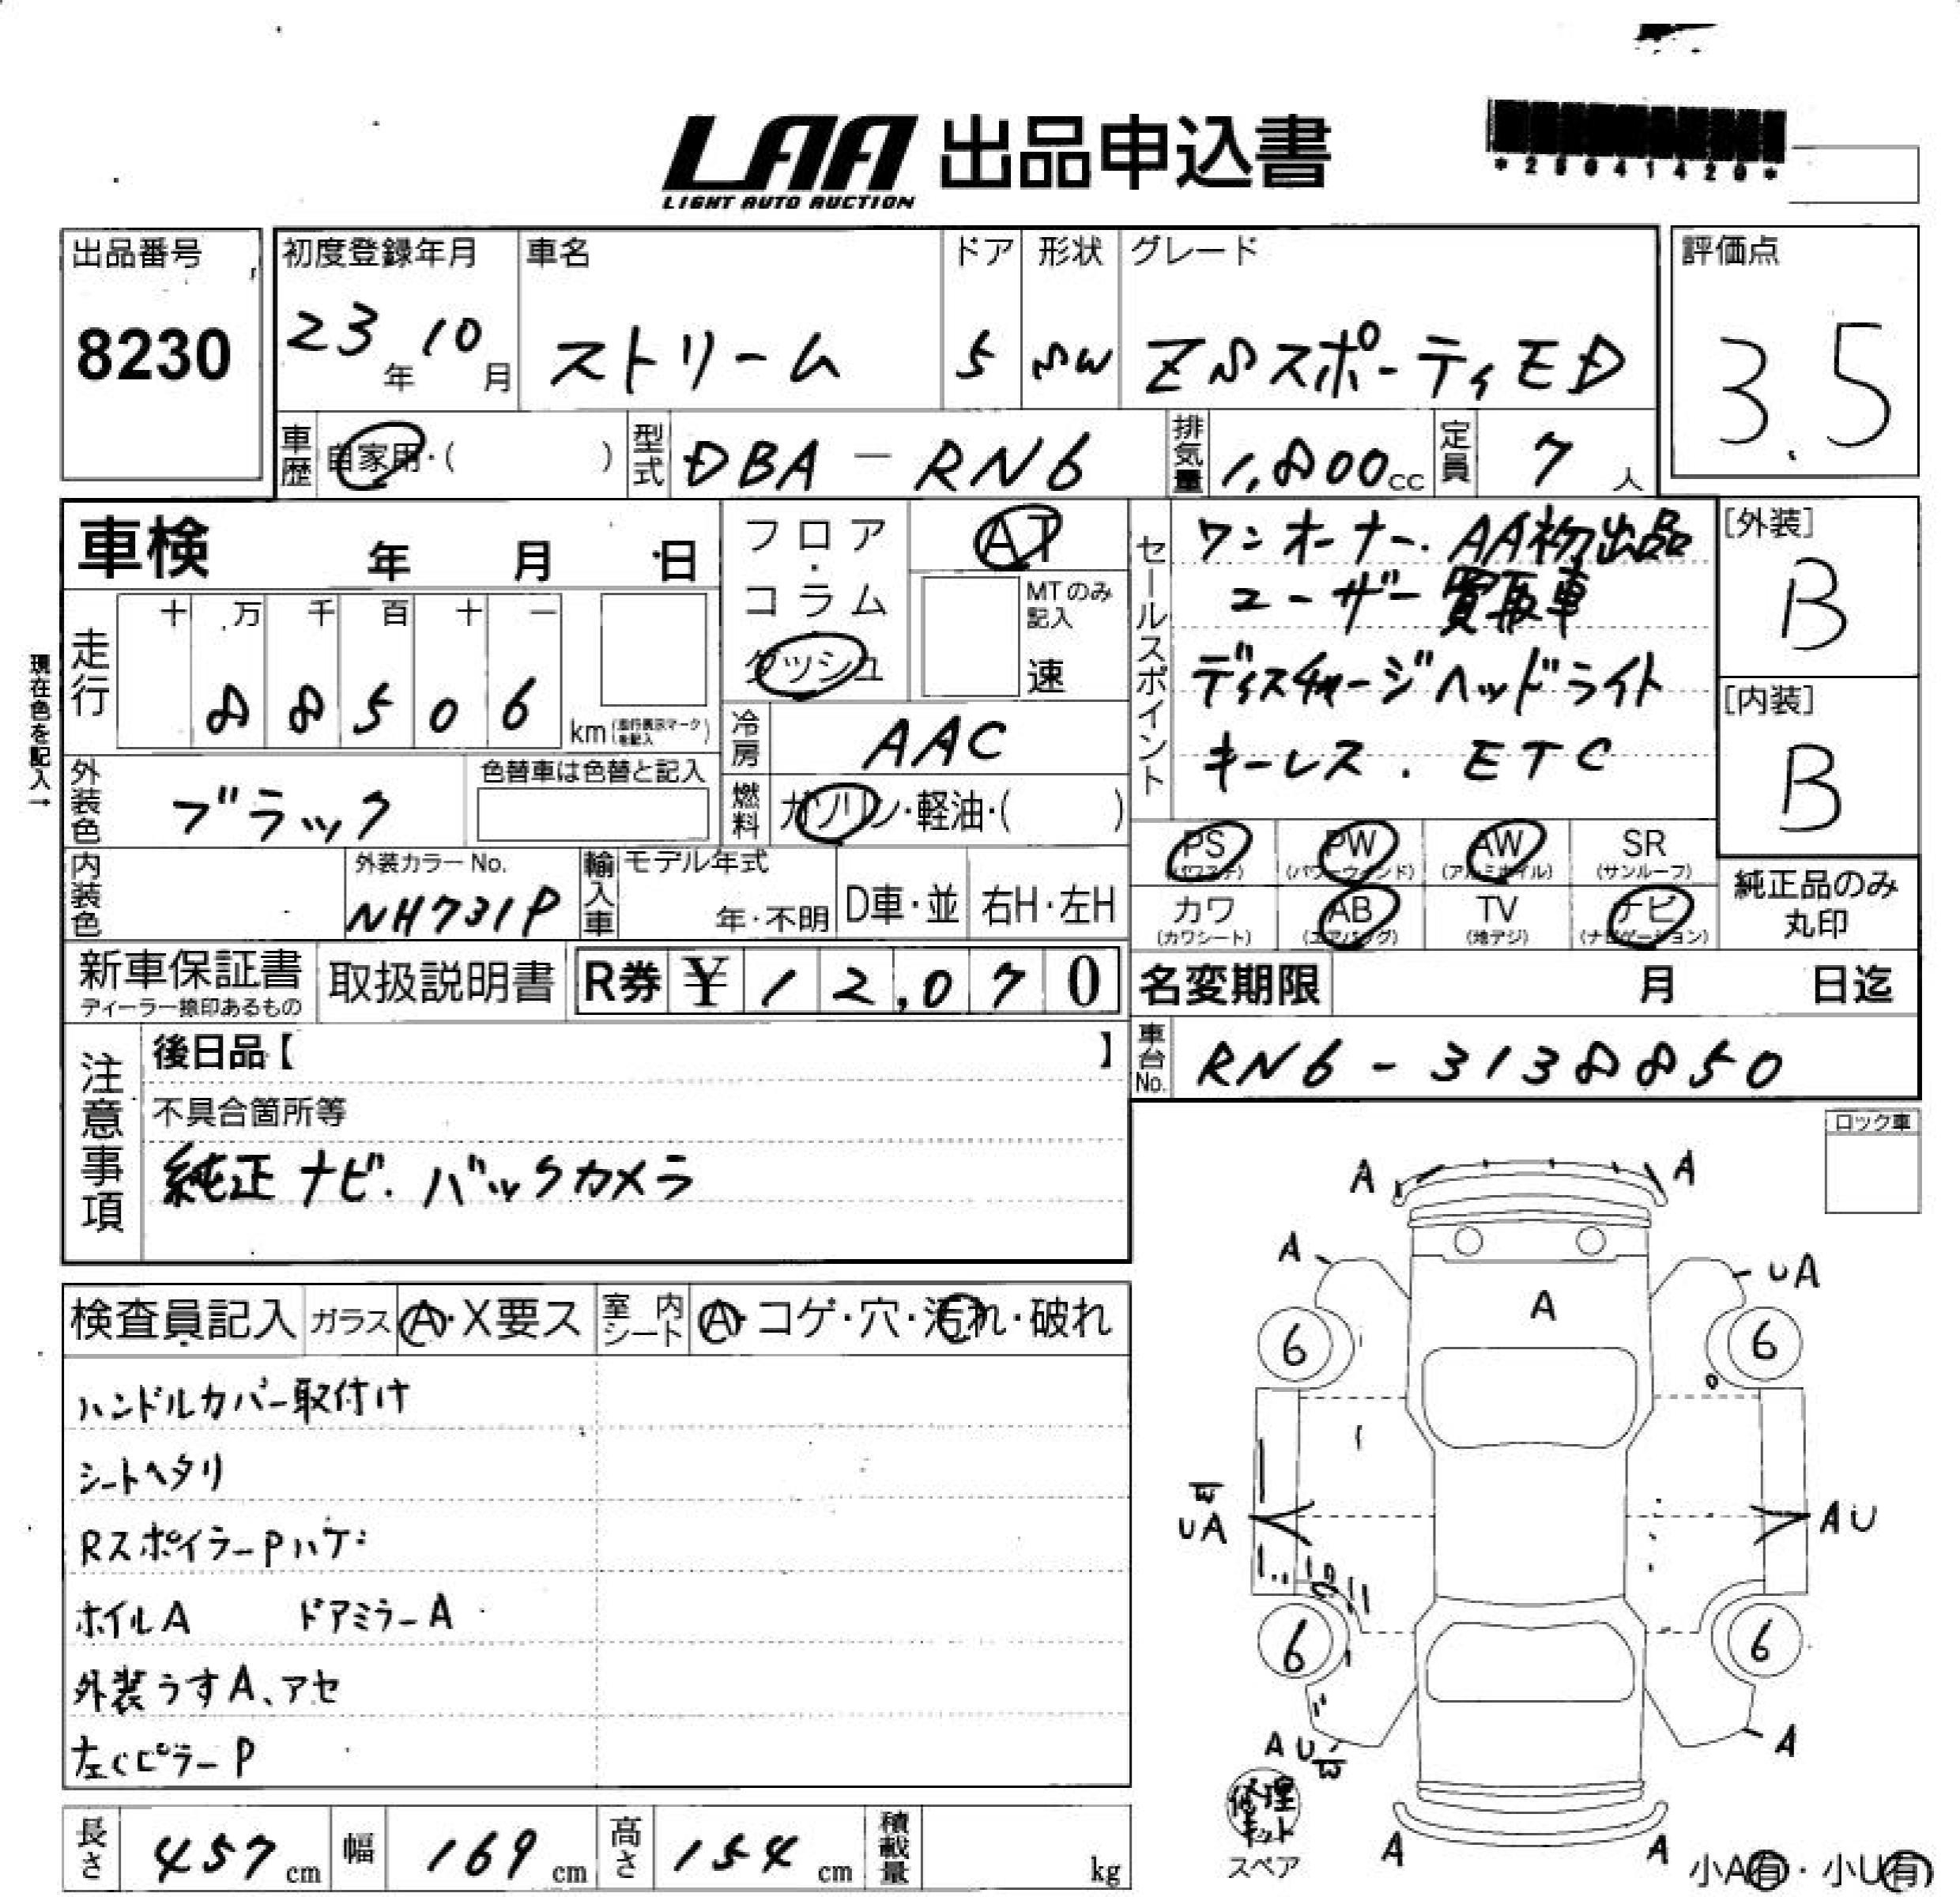 LAA 出品申込書
LIGHT AUTO AUCTION
*25041420*
出品番号
8230
初度登録年月
23年10月
車名
ストリーム
ドア
5
形状
SW
グレード
ZSスポーティED
評価点
3.5
車歴
自家用・( )
型式
DBA-RN6
排気量
1,800cc
定員
7人
車検 年 月 日
走行
十 万 千 百 十 一
88506
km(走行表示マークを記入)
現在色を記入→
フロア・コラム
ダッシュ
AT
MTのみ記入
速
冷房
AAC
燃料
ガソリン・軽油・( )
セールスポイント
ワンオーナー.AA初出品
ユーザー買取車
ディスチャージヘッドライト
キーレス.ETC
[外装]
B
[内装]
B
外装色
ブラック
色替車は色替と記入
内装色
外装カラーNo.
NH731P
輸入車
モデル年式
年・不明
D車・並
右H・左H
PS (パワステ)
PW (パワーウィンド)
AW (アルミホイル)
SR (サンルーフ)
カワ (カワシート)
AB (エアバッグ)
TV (地デジ)
ナビ (ナビゲーション)
純正品のみ丸印
新車保証書
ディーラー捺印あるもの
取扱説明書
R券 ¥12,070
名変期限 月 日迄
車台No.
RN6-3138850
注意事項
後日品【 】
不具合箇所等
純正ナビ.バックカメラ
ロック車
検査員記入
ガラス A・X要ス
室内シート A・コゲ・穴・汚れ・破れ
ハンドルカバー取付け
シートヘタリ
RスポイラーPハゲ
ホイルA ドアミラーA
外装うすA、アセ
左CピラーP
A A
A UA
A
6 6
W
UA AU
6 6
AUW A
A A
修理キット
スペア
小A有・小U有
長さ 457cm
幅 169cm
高さ 154cm
積載量 kg